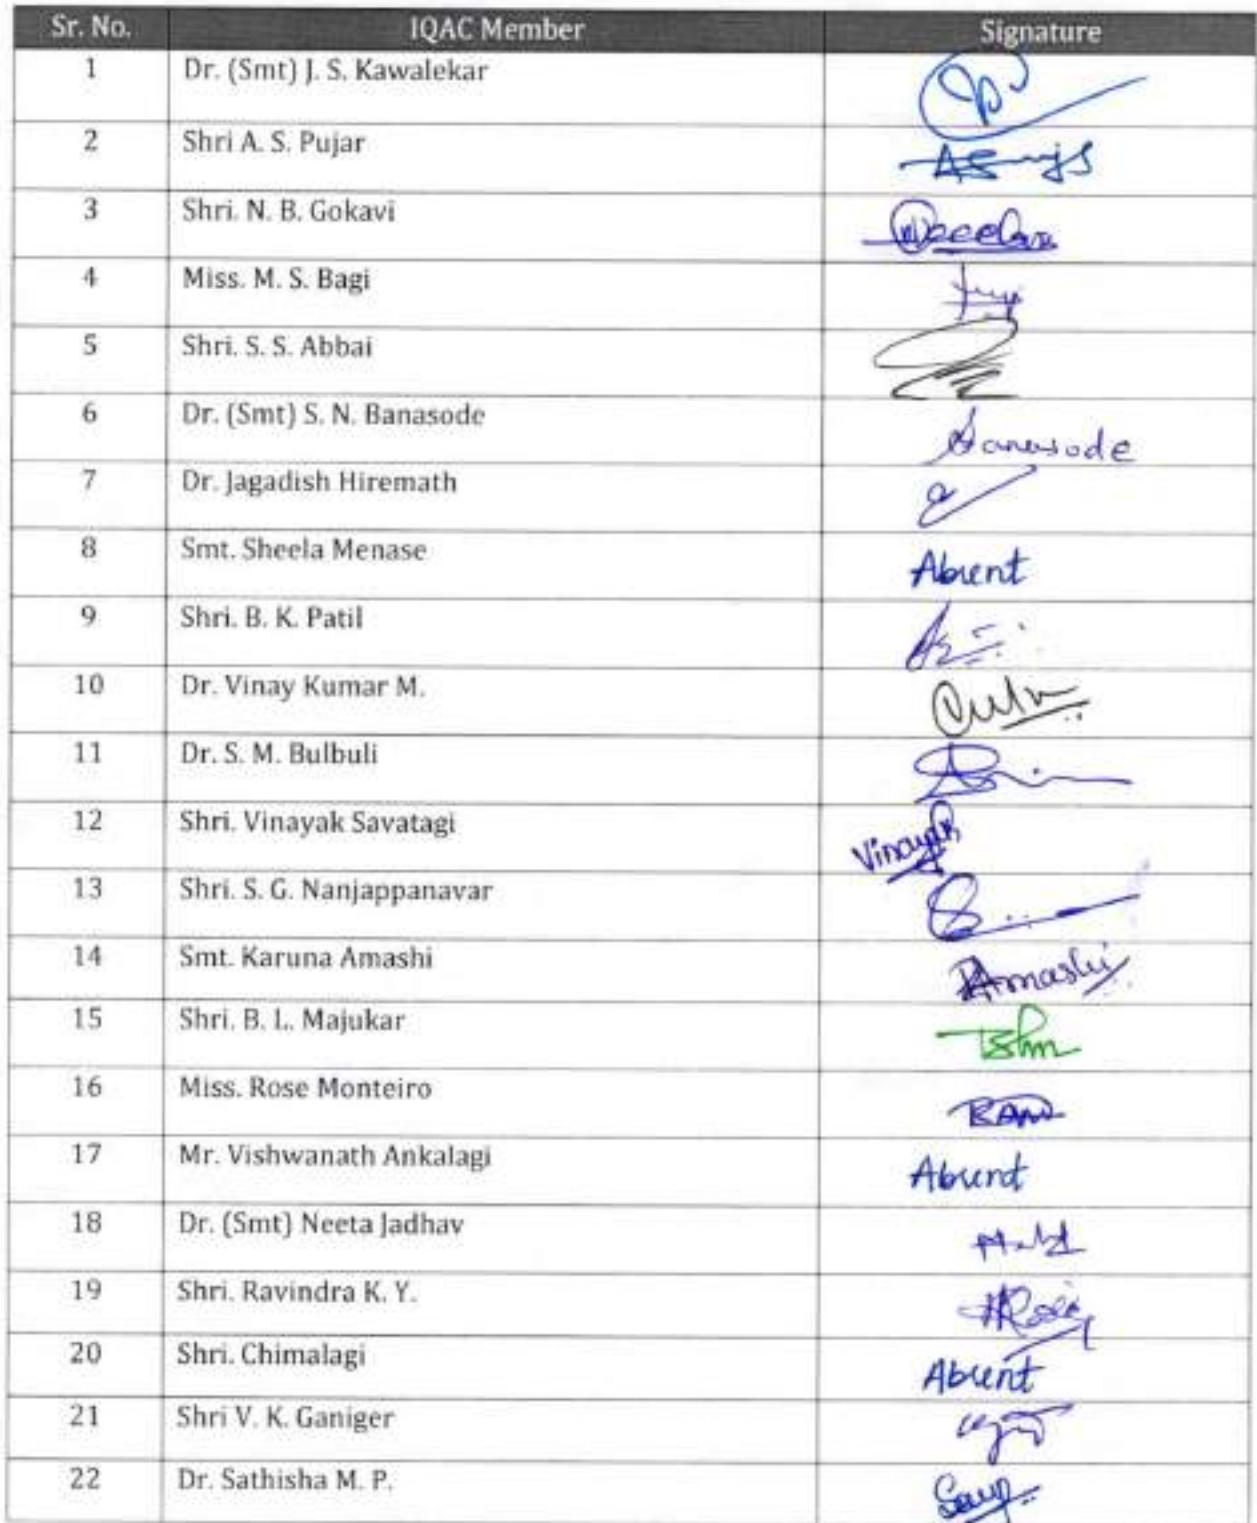 Sr. No. IQAC Member Signature
1 Dr. (Smt) J. S. Kawalekar
2 Shri A. S. Pujar
3 Shri. N. B. Gokavi
4 Miss. M. S. Bagi
5 Shri. S. S. Abbai
6 Dr. (Smt) S. N. Banasode Banasode
7 Dr. Jagadish Hiremath
8 Smt. Sheela Menase Absent
9 Shri. B. K. Patil
10 Dr. Vinay Kumar M.
11 Dr. S. M. Bulbuli
12 Shri. Vinayak Savatagi Vinayak
13 Shri. S. G. Nanjappanavar
14 Smt. Karuna Amashi KAmashi
15 Shri. B. L. Majukar
16 Miss. Rose Monteiro
17 Mr. Vishwanath Ankalagi Absent
18 Dr. (Smt) Neeta Jadhav
19 Shri. Ravindra K. Y.
20 Shri. Chimalagi Absent
21 Shri V. K. Ganiger
22 Dr. Sathisha M. P.